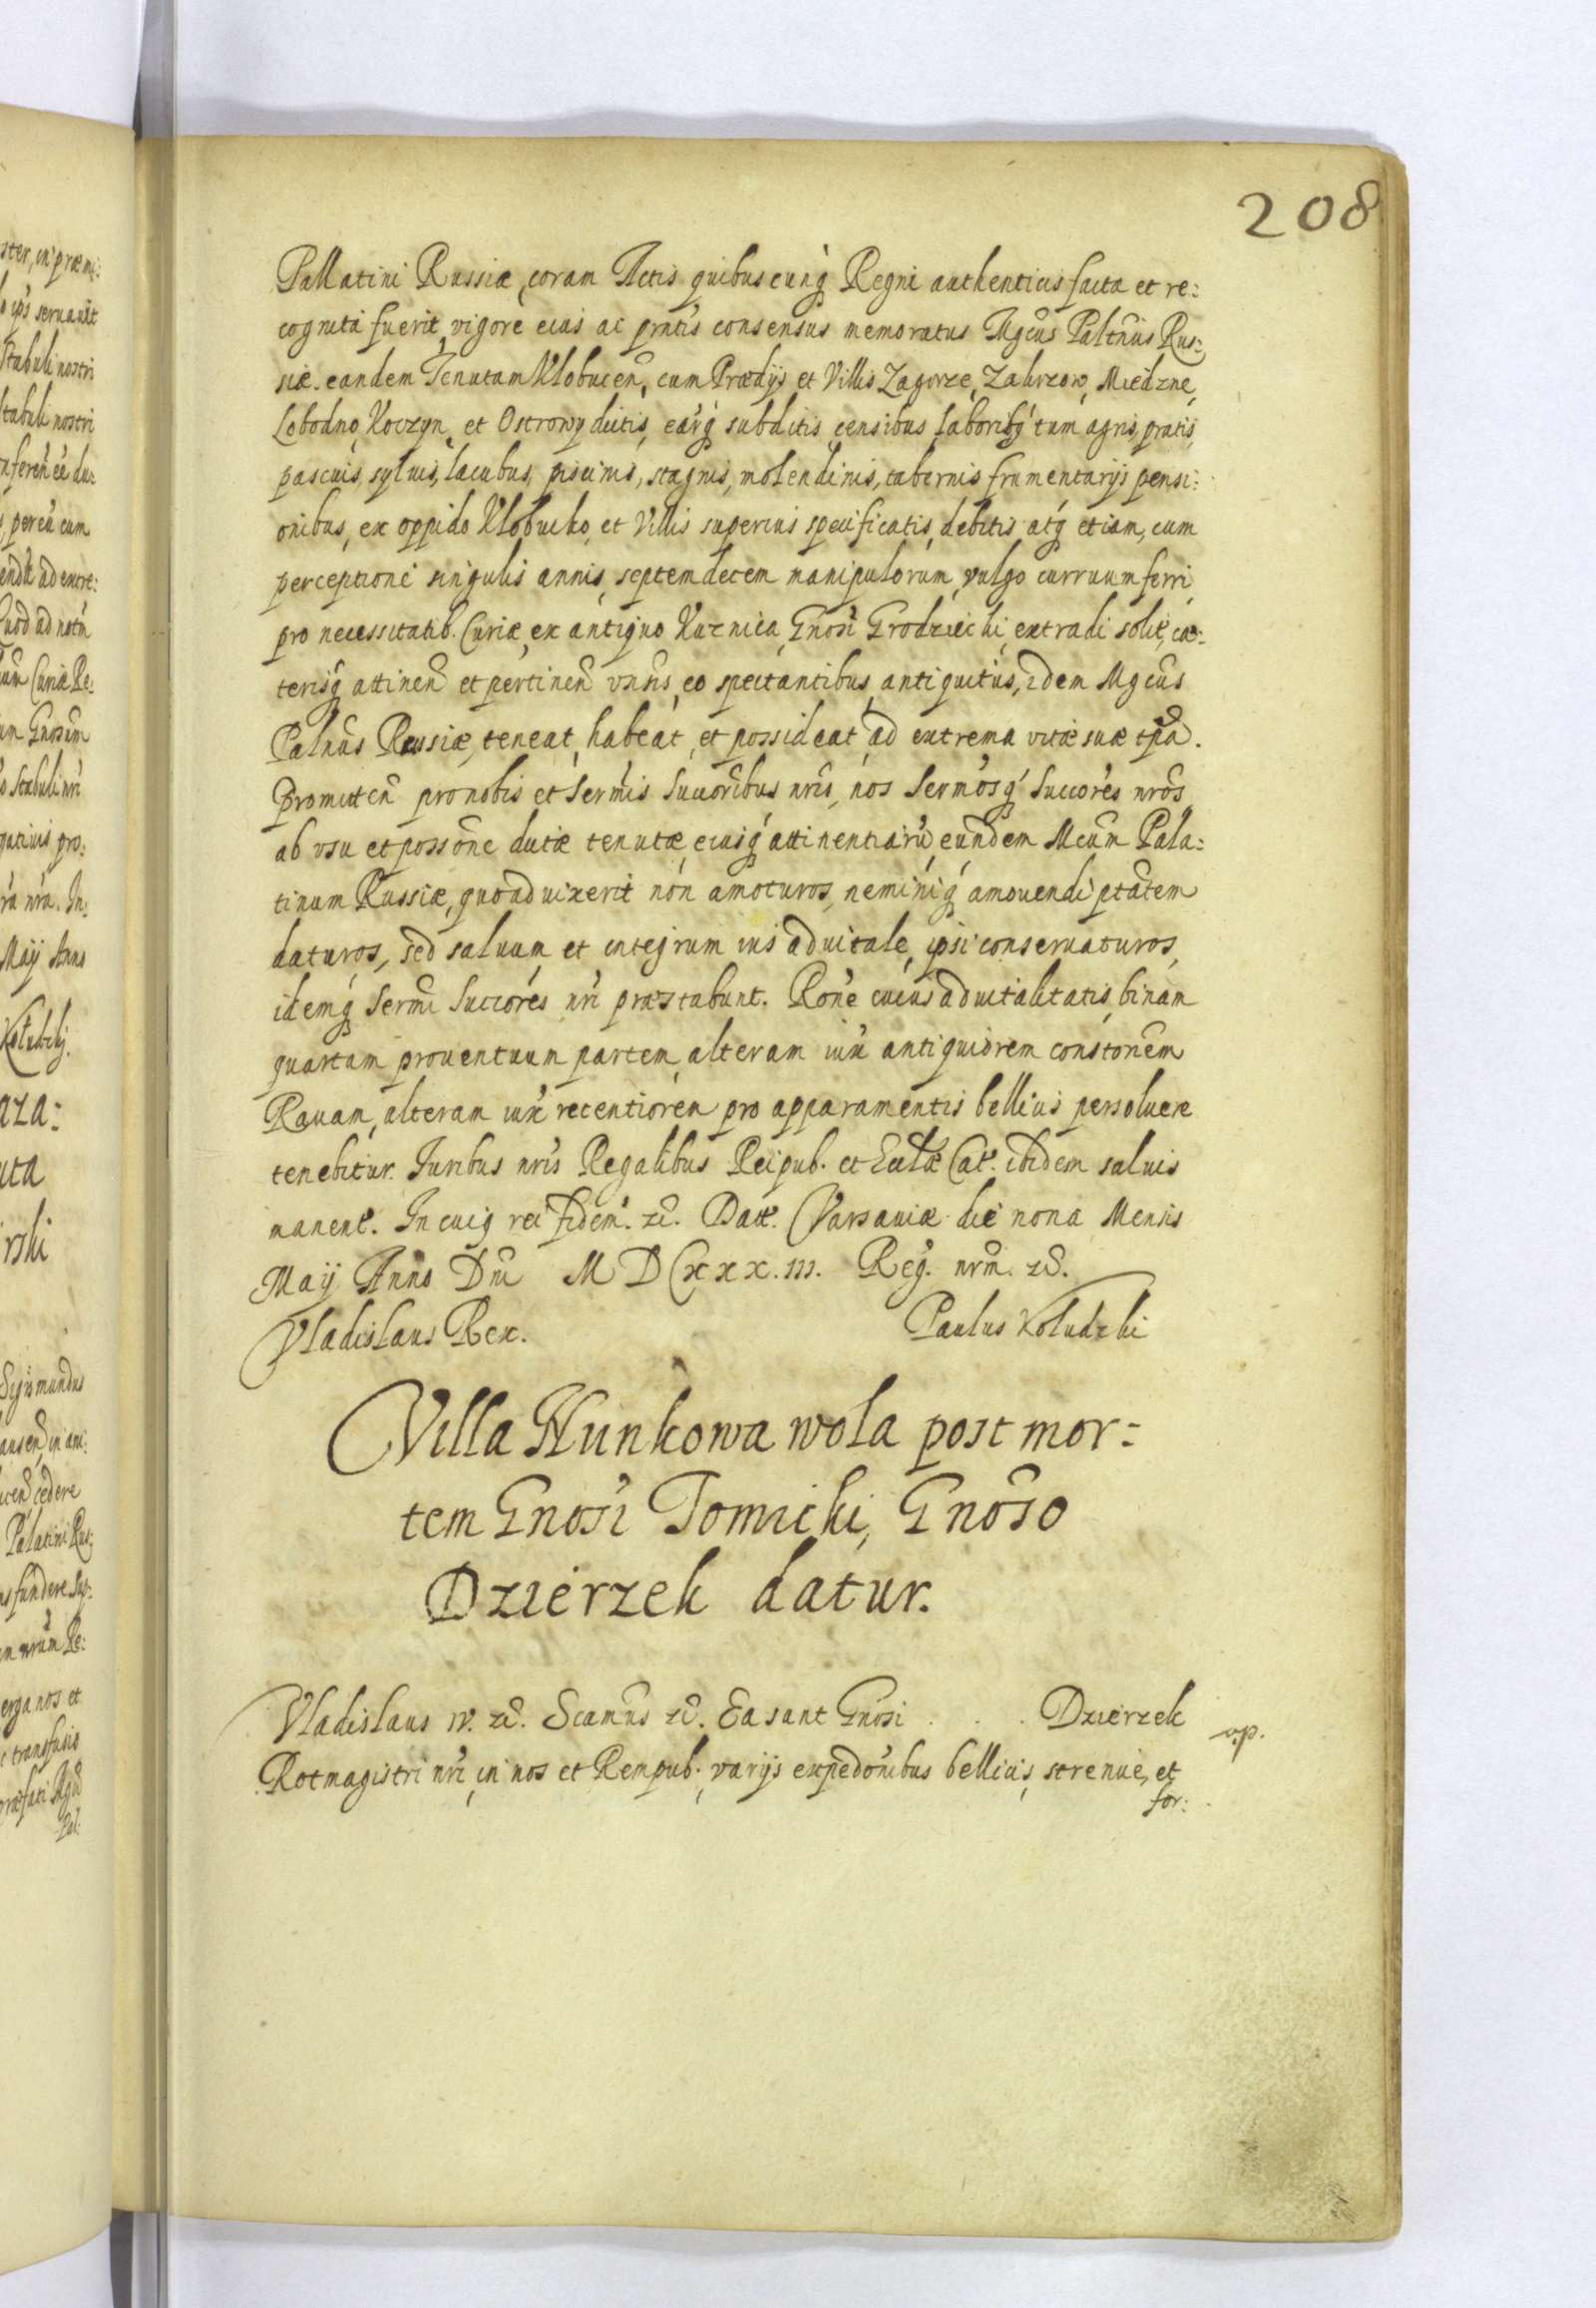 208
Pallatini Russiæ, coram Actis quibuscunq́ Regni authenticis facta et re:
cognita fuerit, vigore eius ac pn̄tis consensus memoratus Mgcūs Paltn̄us Rus:
siæ. eandem Tenutam Klobucen̄, cum Prædijs et Villis Zagorze, Zakrzow, Miedzne,
Lobodno, Koczyn, et Ostrowy dictis, earq́ subditis, censibus, laboribq́ tum agris, pratis,
pascuis, syluis, lacubus, piscinis, stagnis, molendinis, tabernis frumentarijs pensi:
onibus, ex oppido Klobucko, et Villis superius specificatis, debitis atq́ etiam, cum
perceptione singulis annis, septemdecem manipulorum, vulgo curruum ferri,
pro necessitatib. Curiæ, ex antiquo Kuznica, Gnōsi Grodziecki, extradi solit̄, cæ:
terisq́ attinen̄ et pertinen̄ vn̄sis, eo spectantibus, antiquitus, idem Mgcūs
Palnūs Russiæ, teneat, habeat, et possideat, ad extrema vitæ suæ tp̄a.
Promitten̄ pro nobis et Serm̄is Succōribus nr̄is, nos Serm̄osq́ Succōres nr̄os
ab vsu et possōne dictæ tenutæ, eiusq́ attinentiarū, eundem Mcūm Pala:
tinum Russiæ, quoad uixerit non amoturos, neminiq́ amouendi ptātem
daturos, sed saluum et integrum ius aduitale, ipsi conseruaturos,
idemq́ Serm̄i Succōres nr̄i præstabunt. Rōne cuius aduitalitatis, binam
quartam prouentuum partem, alteram iux̄ antiquiorem constōnem
Rauam, alteram iux̄ recentiorem pro apparamentis bellicis persoluere
tenebitur. Iuribus nr̄is Regalibus Reipub. et Ecclæ Cat̄. ibidem saluis
manent̄. In cuiq rei fidem̄. zc̄. Dat̄. Varsauiæ die nona Mensis
Maij Anno Dn̄i M D C x x x . iii. Reḡ. nr̄m. zc̄.
Vladislaus Rex. Paulus Koludzki
Villa Hunkowa wola post mor:
tem Gnōsi Tomicki, Gnōso
Dzierzek datur.
Vladislaus IV. zc̄. Scamūs zc̄. Ea sunt Gnōsi . . . Dzierzek
Rotmagistri nr̄i, in nos et Rempub. varijs expedōnibus bellicis, strenue, et
for: